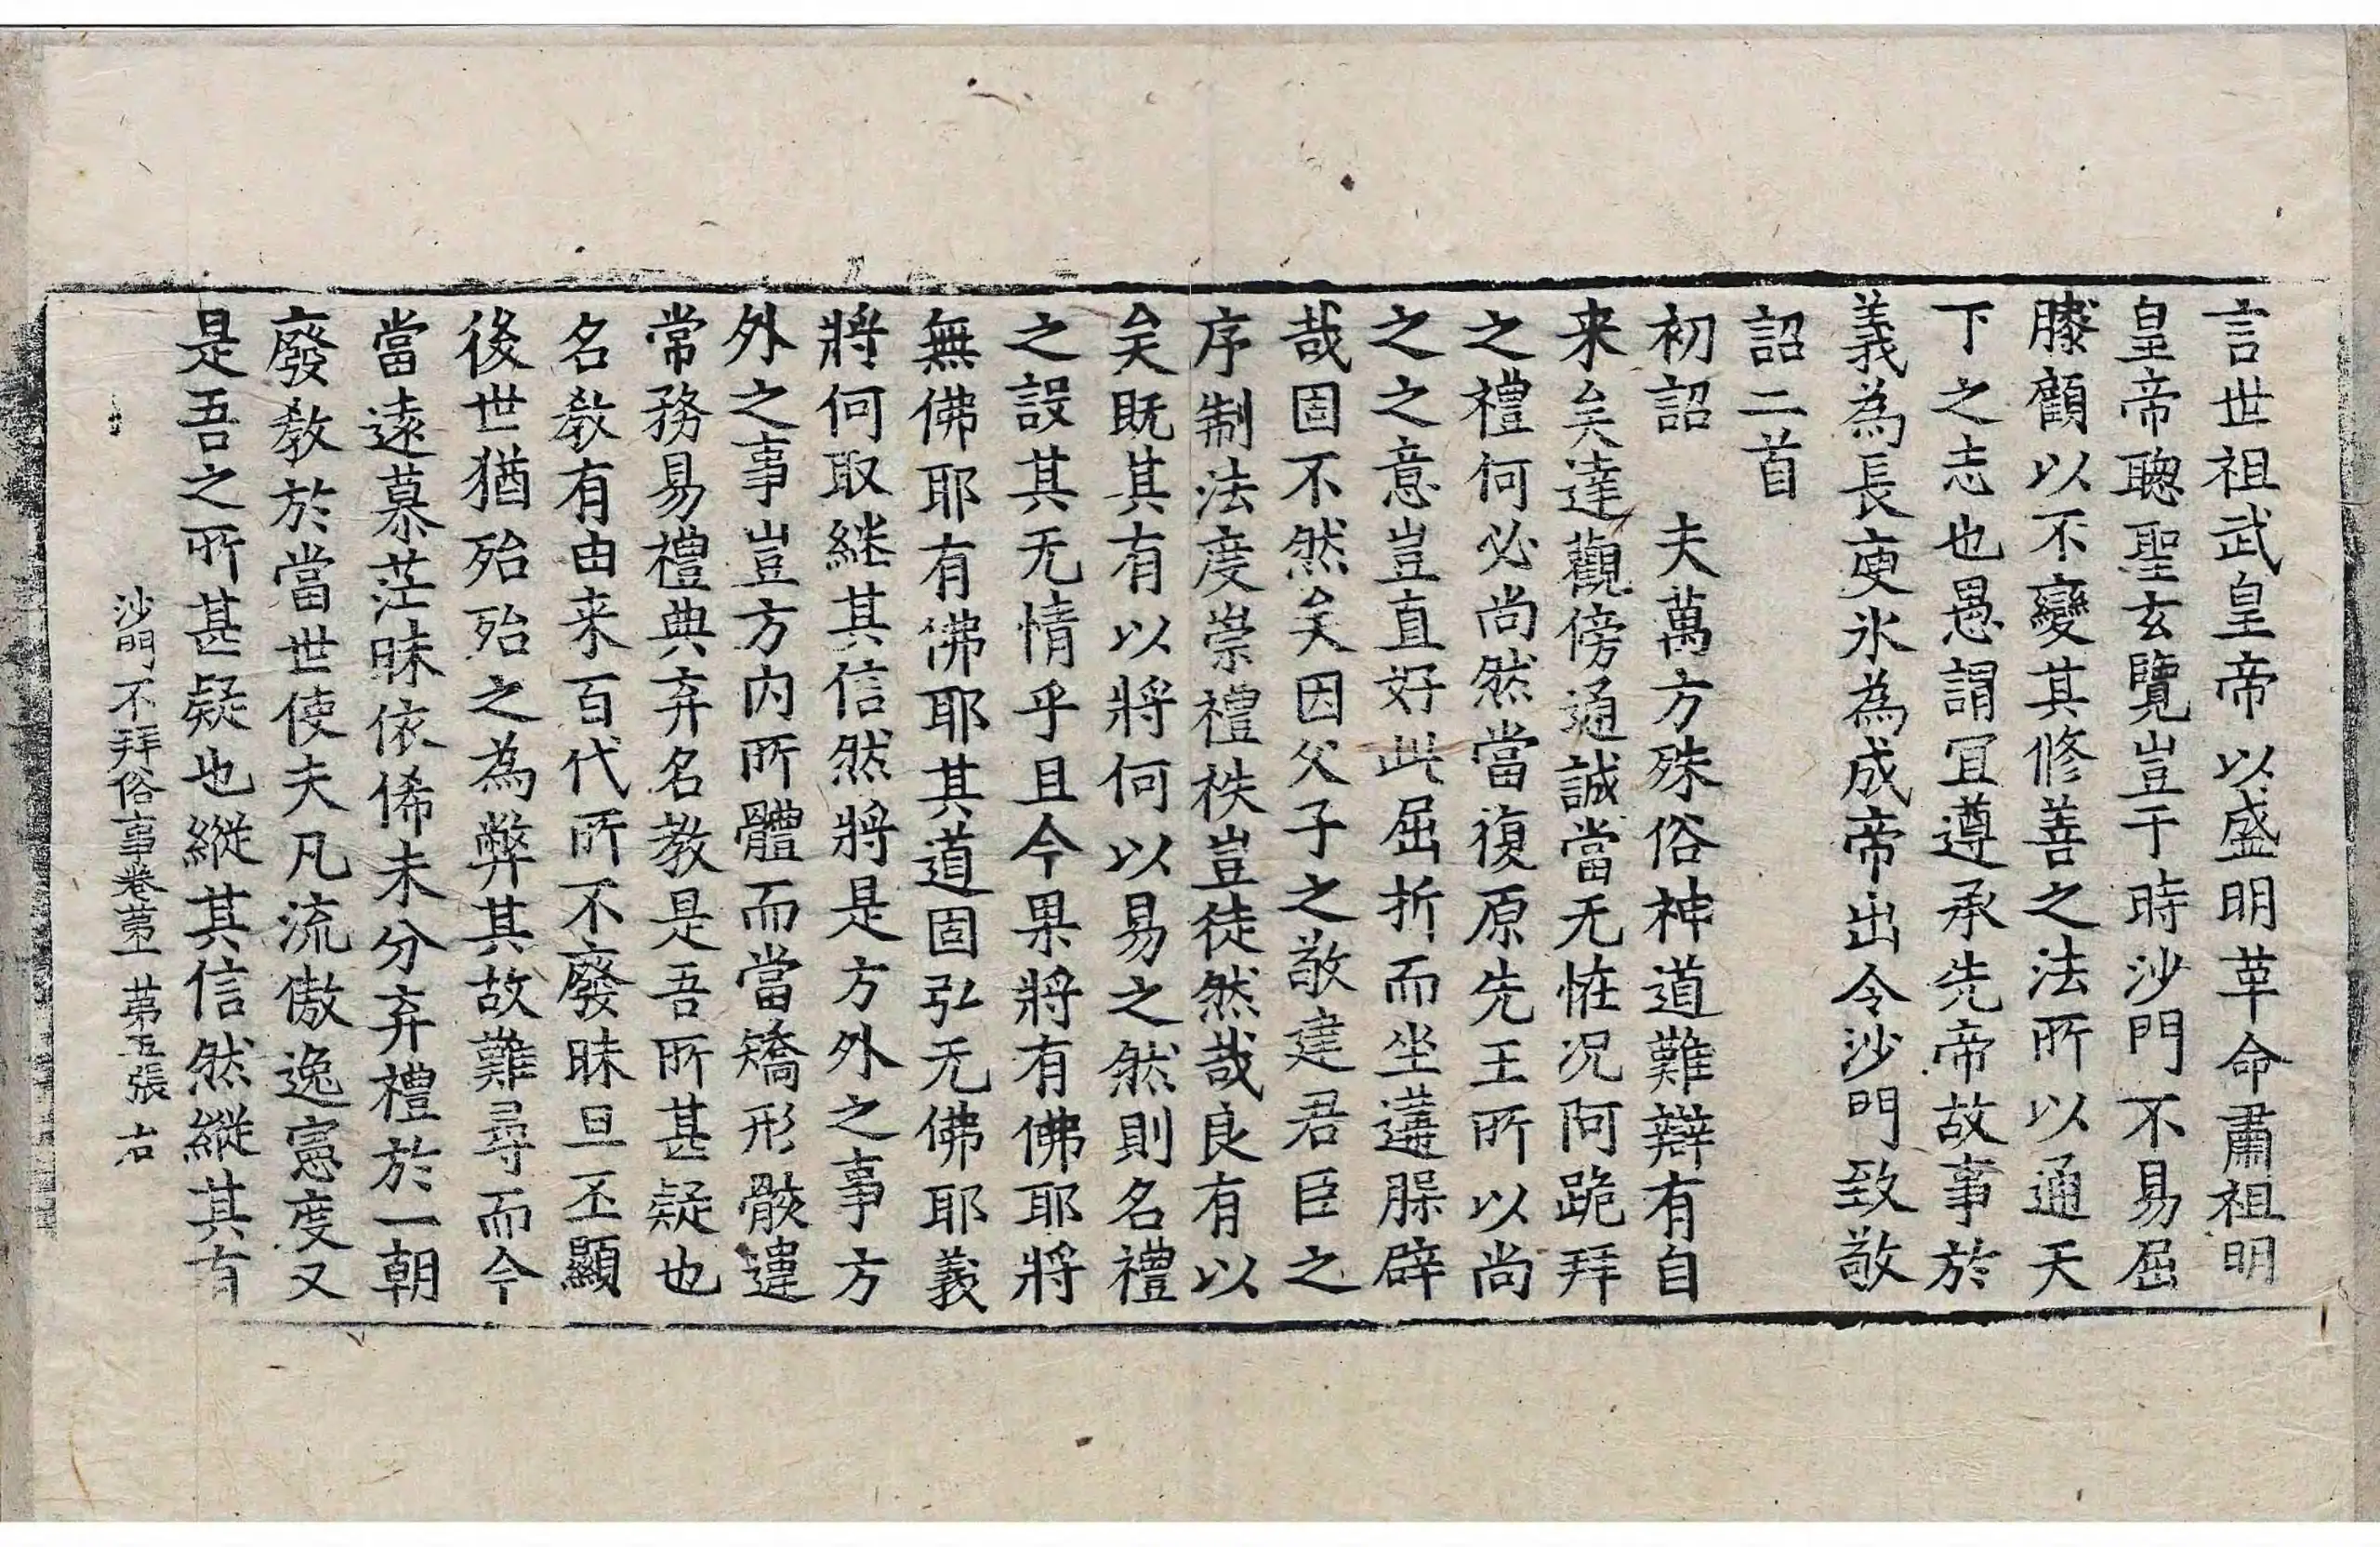 言世祖武皇帝以盛明革命肅祖明
皇帝聰聖玄覽豈于時沙門不易屈
膝顧以不變其修善之法所以通天
下之志也愚謂冝遵承先帝故事於
義為長庾氷為成帝出令沙門致敬
詔二首
初詔　夫萬方殊俗神道難辯有自
来矣達觀傍通誠當无恠况阿跪拜
之禮何必尚然當復原先王所以尚
之之意豈直好此屈折而坐遘䐧辟
哉固不然矣因父子之敬建君臣之
序制法度崇禮秩豈徒然哉良有以
矣既其有以將何以易之然則名禮
之設其无情乎且今果將有佛耶將
無佛耶有佛耶其道固弘无佛耶義
將何取継其信然將是方外之事方
外之事豈方内所體而當矯形骸違
常務易禮典弃名教是吾所甚疑也
名教有由来百代所不廢昧旦丕顯
後世猶殆殆之為弊其故難尋而今
當遠慕茫昧依俙未分弃禮於一朝
廢教於當世使夫凡流傲逸憲度又
是吾之所甚疑也縱其信然縱其有
沙門不拜俗事卷苐一　苐五張　右